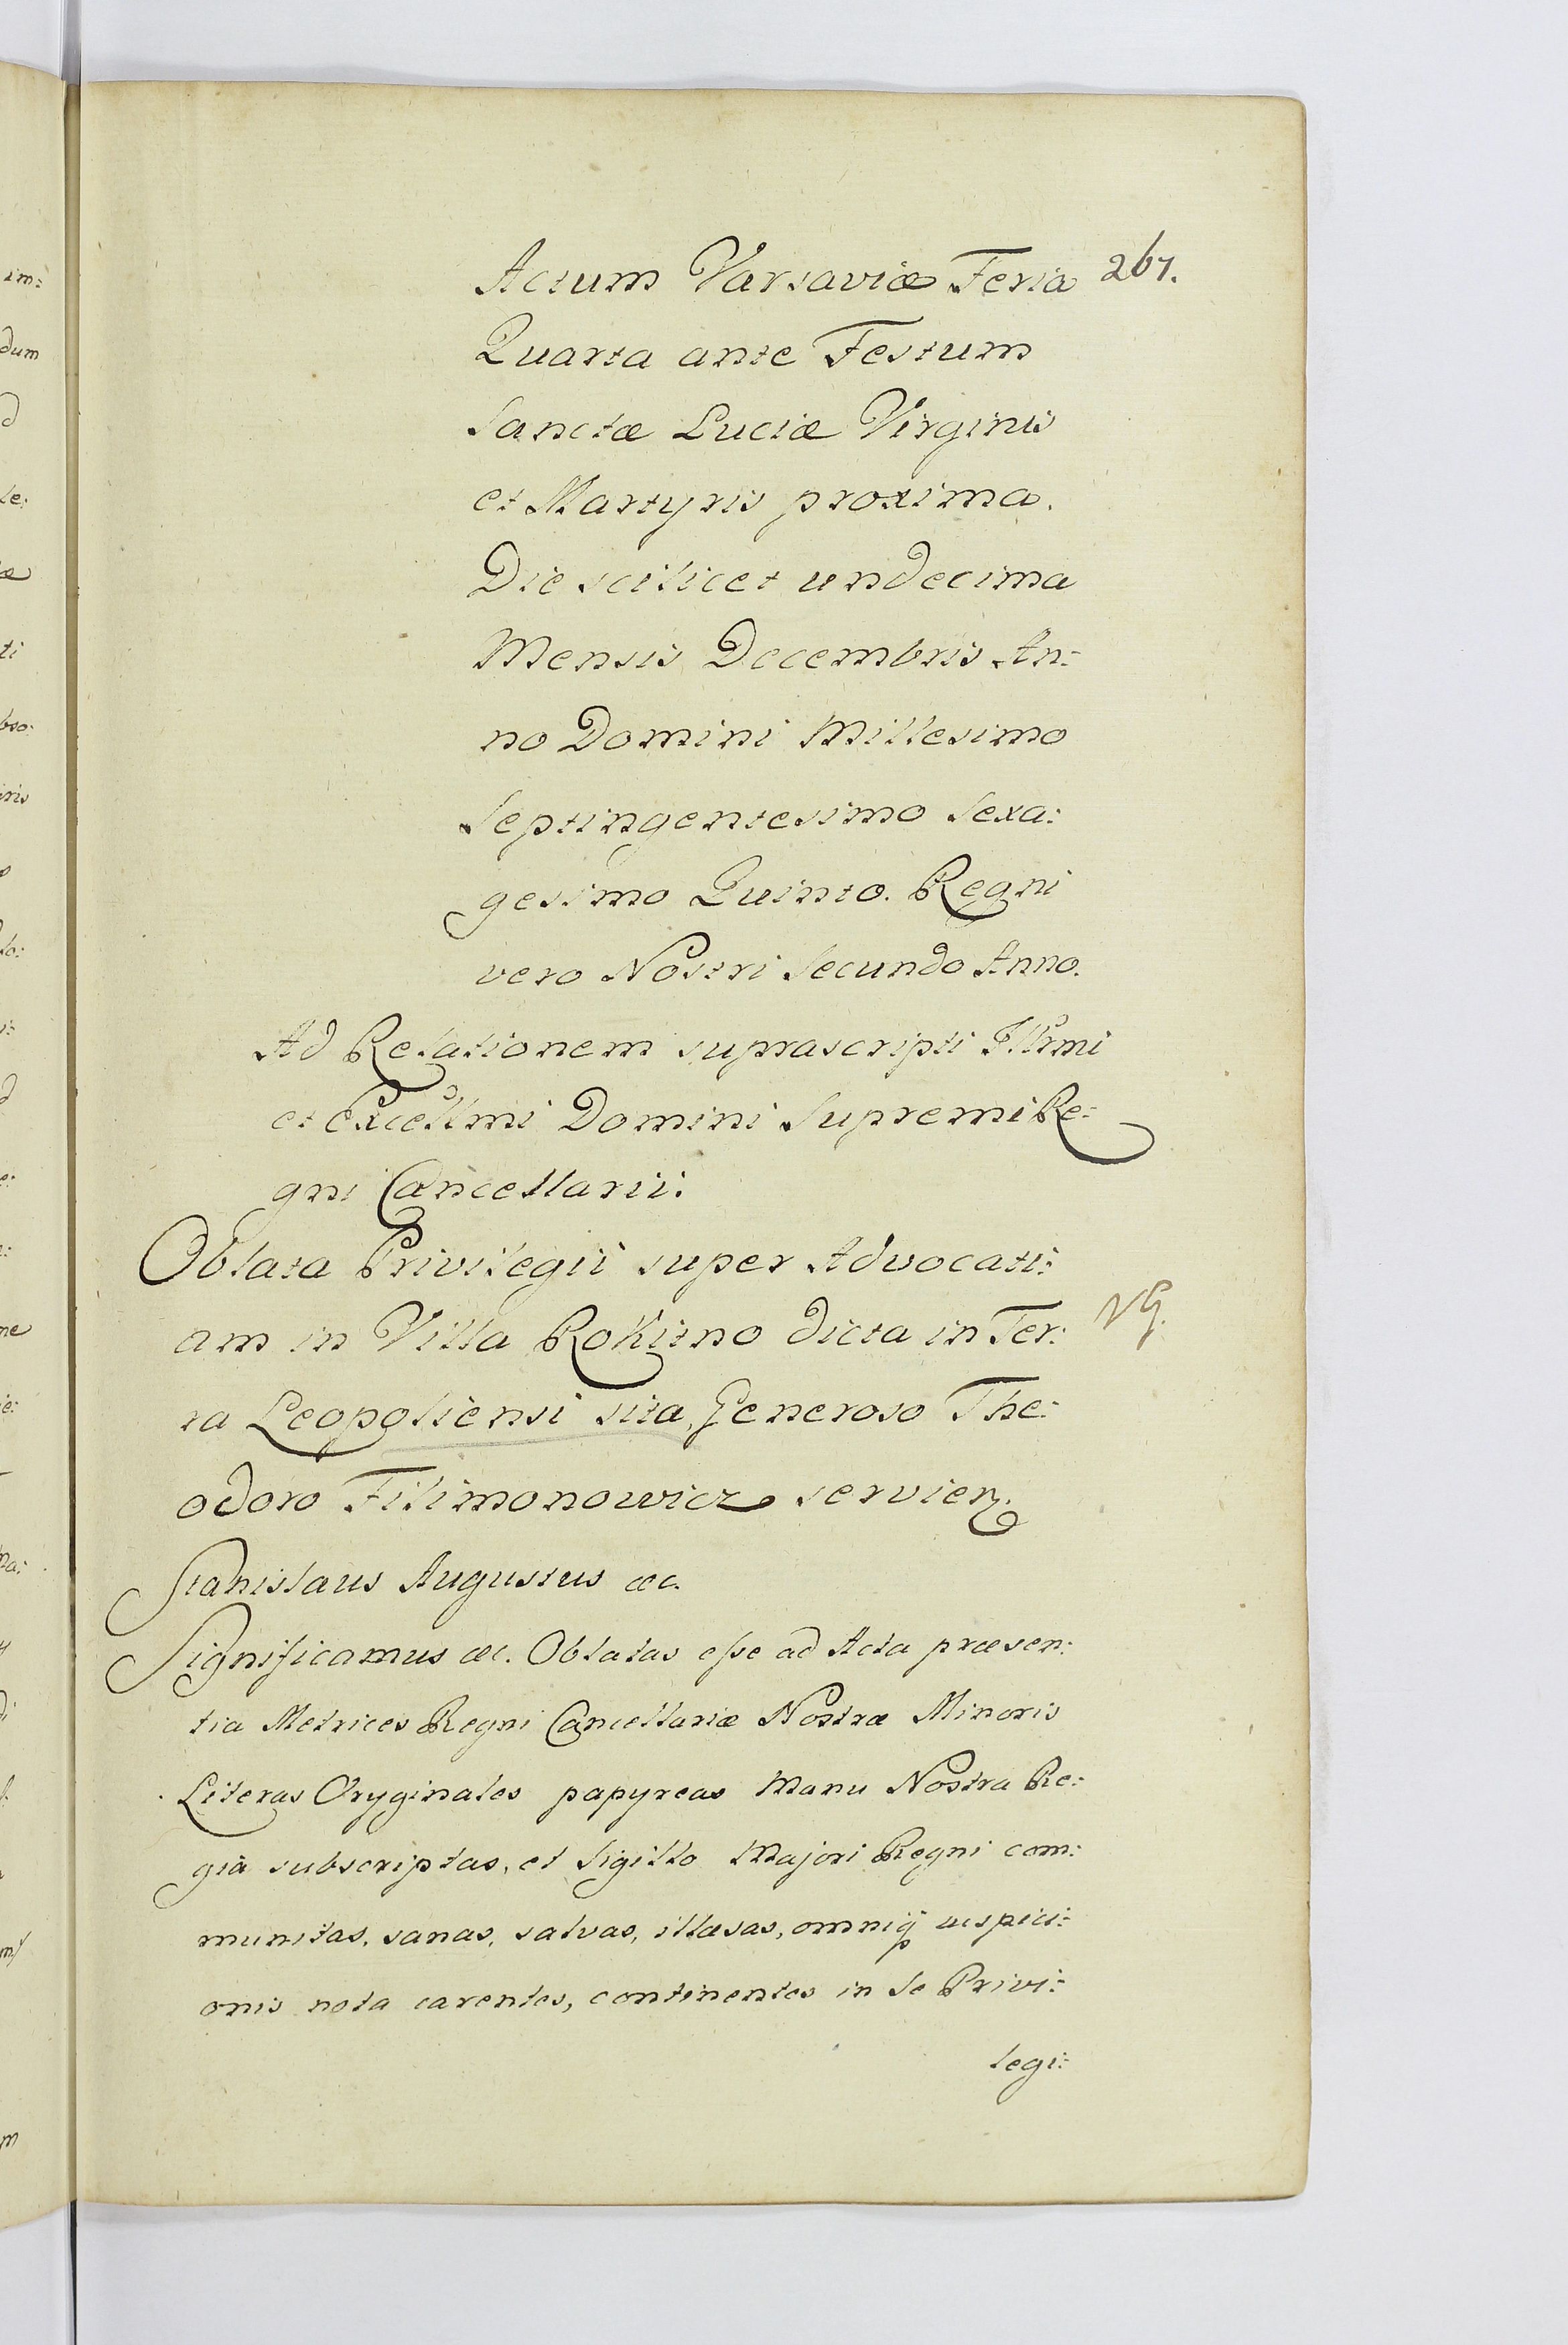 Actum Varsaviæ Feria 267.
Quarta ante Festum
Sanctæ Luciæ Virginis
et Martyris proxima.
Die scilicet undecima
Mensis Decembris An:
no Domini Millesimo
Septingentesimo Sexa:
gesimo Quinto. Regni
vero Nostri Secundo Anno.
Ad Relationem suprascripti Illrmi
et Excellmi Domini Supremi Re:
gni Cancellarii.
Oblata Privilegii super Advocati:
am in Villa Rokitno dicta in Ter:
ra Leopoliensi sita, Generoso The:
odoro Filimonowicz servien.
Stanislaus Augustus &c.
Significamus &c. Oblatas esse ad Acta præsen:
tia Metrices Regni Cancellariæ Nostræ Minoris
Literas Oryginales papyreas Manu Nostra Re:
gia subscriptas, et Sigillo Majori Regni com:
munitas, sanas, salvas, illæsas, omniq suspici:
onis nota carentes, continentes in se Privi:
legi:
im:
dum
d
le:
æ
ti
bso:
iris
lo:
ne
ie:
na:
m